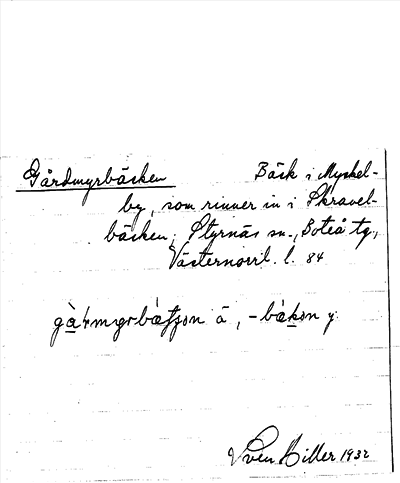 Gårdmyrbäcken Bäck i Myckel-
by, som rinner in i Skravel-
bäcken, Styrnäs sn., Boteå tg,
Västernorrl. l. 84
gàrmyrbàʃʃən ä, -bàkən y
Sven Hiller 1932